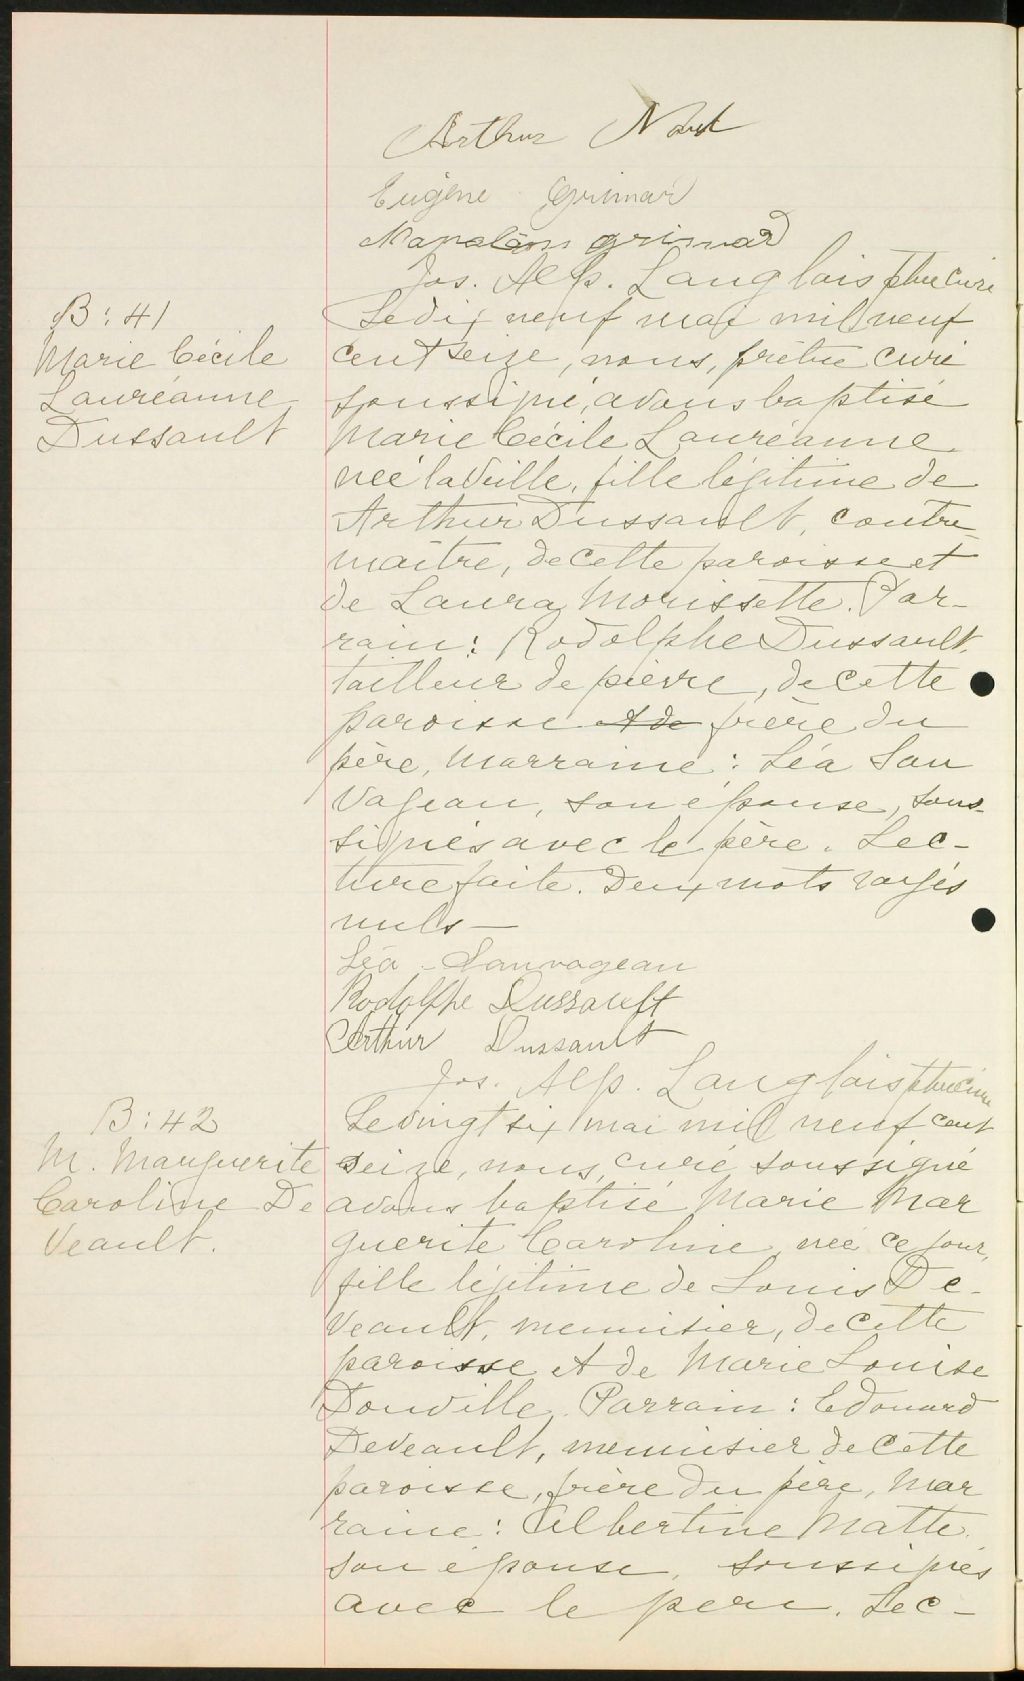 Arthur
Eugène Grimard
Grimard
Jos. Alp. Langlois ptre curé
B: 41
Marie Cécile
Lauréanne
Dussault
Le dix neuf mai mil neuf
cent seize, nous, prêtre curé
soussigné, avons baptisé
Marie Cécile Lauréanne
née la veille, fille légitime de
Arthur Dussault, contre-
maître, de cette paroisse et
de Laura Morissette. Par-
rain: Rodolphe Dussault,
tailleur de pierre, de cette
paroisse et de frère du
père, Marraine: Léa Sau
vageau, son épouse, sous-
signés avec le père. Lec-
ture faite. Deux mots rayés
nuls —
Léa Sauvageau
Rodolphe Dussault
Arthur Dussault
Jos. Alp. Langlois ptre curé
B: 42
M. Marguerite
Caroline De
Veault.
Le vingt six mai mil neuf cent
seize, nous, curé soussigné
avons baptisé Marie Mar
guerite Caroline, née ce jour,
fille légitime de Louis De-
Veault, menuisier, de cette
paroisse et de Marie Louise
Douville. Parrain: Edouard
Deveault, menuisier de cette
paroisse, frère du père, Mar
raine: Albertine Matte
son épouse, soussignés
avec le père. Lec-